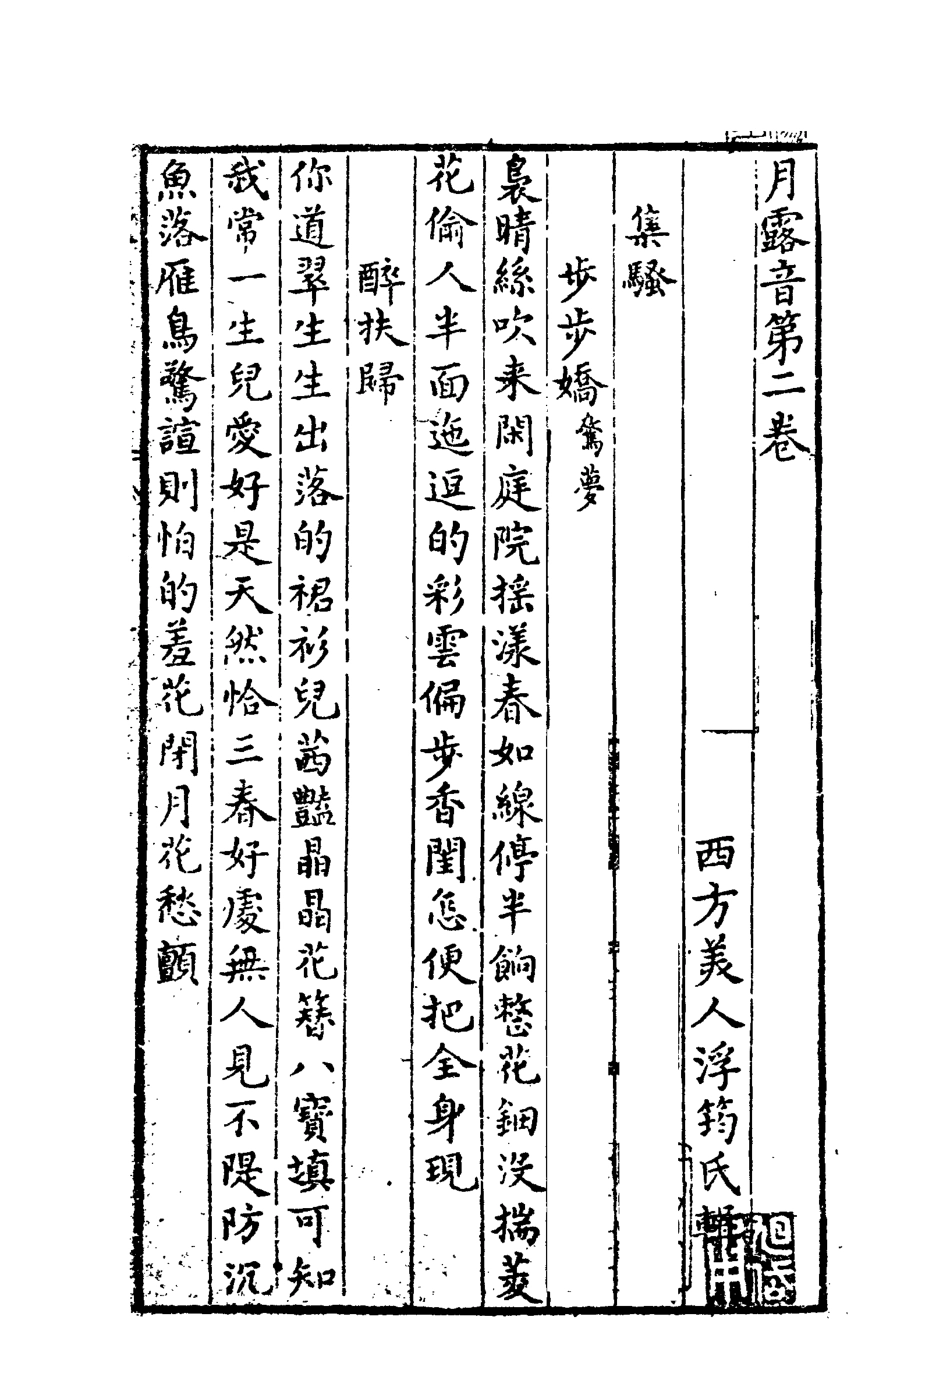 月露音第二卷
西方美人浮筠氏輯
集騷
步步嬌 驚夢
裊晴絲吹来閑庭院搖漾春如線停半餉整花鈿沒揣菱
花偷人半面迤逗的彩雲偏步香閨怎便把全身現
醉扶歸
你道翠生生出落的裙衫兒茜豔晶晶花簪八寶填可知
我常一生兒愛好是天然恰三春好處無人見不隄防沉
魚落雁鳥驚諠則怕的羞花閉月花愁顫